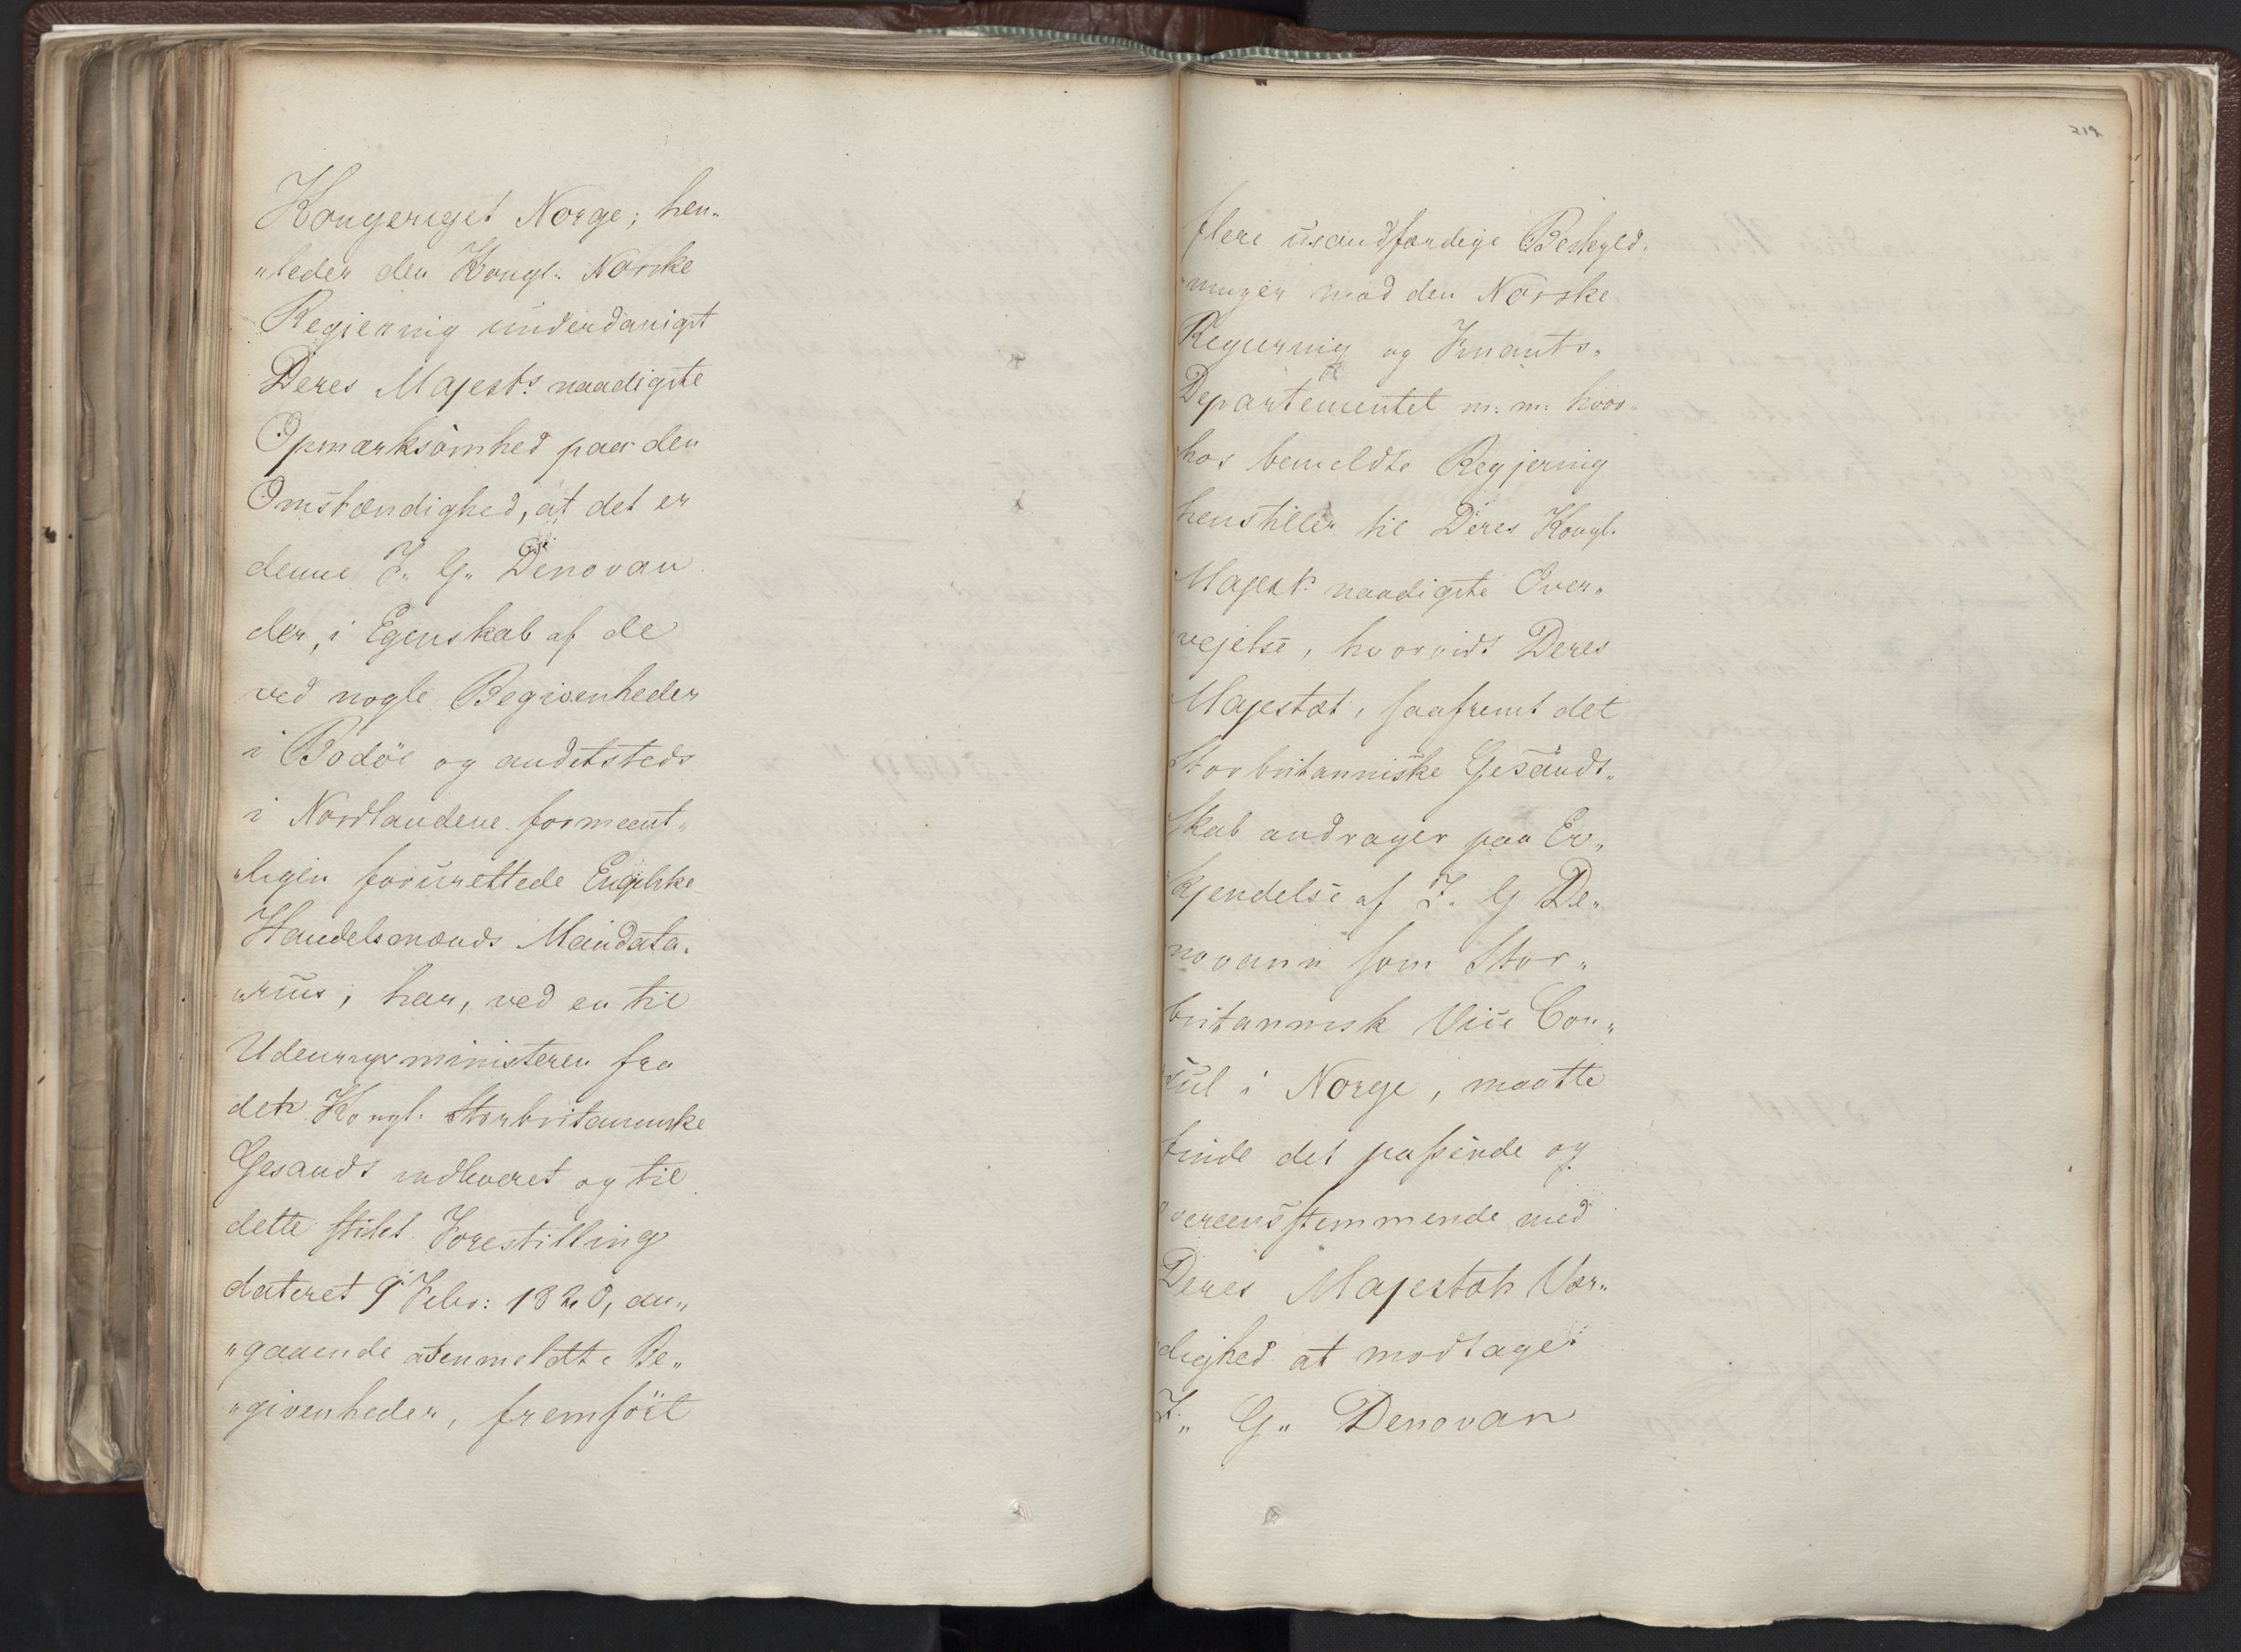 Kongeriget Norge; hen„
„leder den Kongl: Norske
Regjering underdanigst
Deres Majest:s naadigste
Opmærksomhed paa den
Omstændighed, at det er
denne J. G. Denovan
der, i Egenskab af de
ved nogle Begivenheder
i Bodöe og andetsteds
i Nordlandene formeent„
„ligen forurettede Engelske
Handelsmænds Mandata„
„rius, har, ved en til
Udenrigsministeren fra
det Kongl. Storbritanniske
Gesandt indleveret og til
dette stilet Forestilling
dateret 9 Febr: 1820, an„
„gaaende ovenmeldte Be„
„givenheder, fremfört
219
flere usandfærdige Beskyld„
„ninger mod den Norske
Regjering og Finants„
Departementet m: m: hvor„
„hos bemeldte Regjering
henstiller til Deres Kongl.
Majest:s naadigste Over„
„vejelse, hvorvidt Deres
Majestæt, saafremt det
Storbritanniske Gesandt„
„skab andrager paa Er„
„kjendelse af J. G De„
„novann som Stor„
„britannisk Vice Con„
„sul i Norge, maatte
finde det passende og
overeensstemmende med
Deres Majestæts Vær„
„dighed at modtage
J„ G„ Denovan